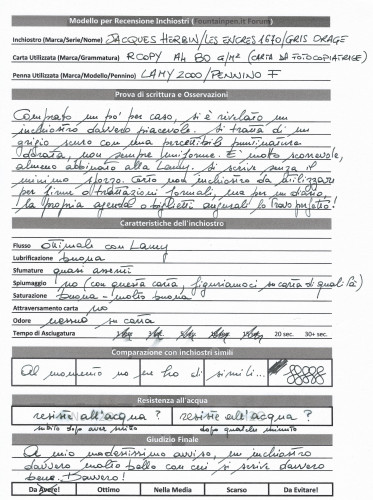 Modello per Recensione Inchiostri (Fountainpen.it Forum)
Inchiostro (Marca/Serie/Nome) JACQUES HERBIN/LES ENCRES 1670/GRIS ORAGE
Carta Utilizzata (Marca/Grammatura) RCOPY A4 80 g/m² (CARTA DA FOTOCOPIATRICE)
Penna Utilizzata (Marca/Modello/Pennino) LAMY 2000/PENNINO F
Prova di scrittura e Osservazioni
Comprato un po' per caso, si è rivelato un
inchiostro davvero piacevole. Si tratta di un
grigio scuro con una percettibile puntinatura
dorata, non sempre uniforme. E' molto scorrevole,
almeno abbinato alla Lamy. Si scrive senza il
minimo sforzo. Certo non inchiostro da utilizzare
per firme o trattazioni formali, ma per un diario,
la propria agenda o biglietti augurali lo trovo perfetto!
Caratteristiche dell'inchiostro
Flusso ottimale con Lamy
Lubrificazione buona
Sfumature quasi assenti
Spiumaggio no (con questa carta, figuriamoci su carta di qualità)
Saturazione buona - molto buona
Attraversamento carta no
Odore nessuno su carta
Tempo di Asciugatura 20 sec. 30+ sec.
Comparazione con inchiostri simili
Al momento no ne ho di simili...
Resistenza all'acqua
resiste all'acqua ? resiste all'acqua ?
subito dopo aver scritto dopo qualche minuto
Giudizio Finale
A mio modestissimo avviso, un inchiostro
davvero molto bello con cui si scrive davvero
bene. Davvero!
Da Avere! Ottimo Nella Media Scarso Da Evitare!